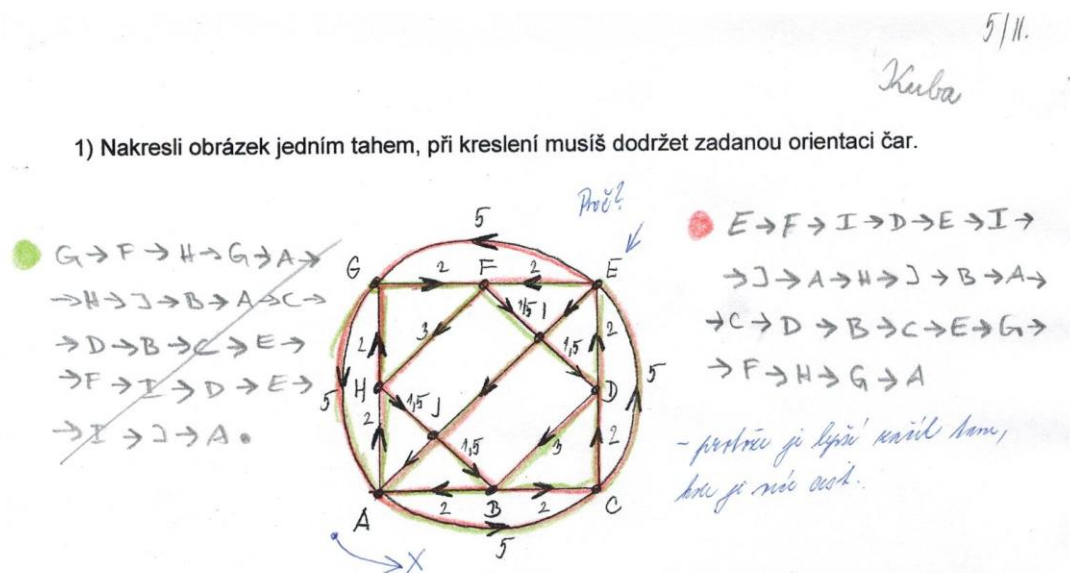 5/11.
Kuba
1) Nakresli obrázek jedním tahem, při kreslení musíš dodržet zadanou orientaci čar.
G→F→H→G→A→
→H→J→B→A→C→
→D→B→C→E→
→F→I→D→E→
→I→J→A.
Proč?
5
G F E
2 2
1,5 I
3 1,5
2 2
5 H D 5
1,5 J
2 1,5 3 2
A B C
2 2
5
X
E→F→I→D→E→I→
→J→A→H→J→B→A→
→C→D→B→C→E→G→
→F→H→G→A
- protože je lepší začít tam,
kde je více cest.